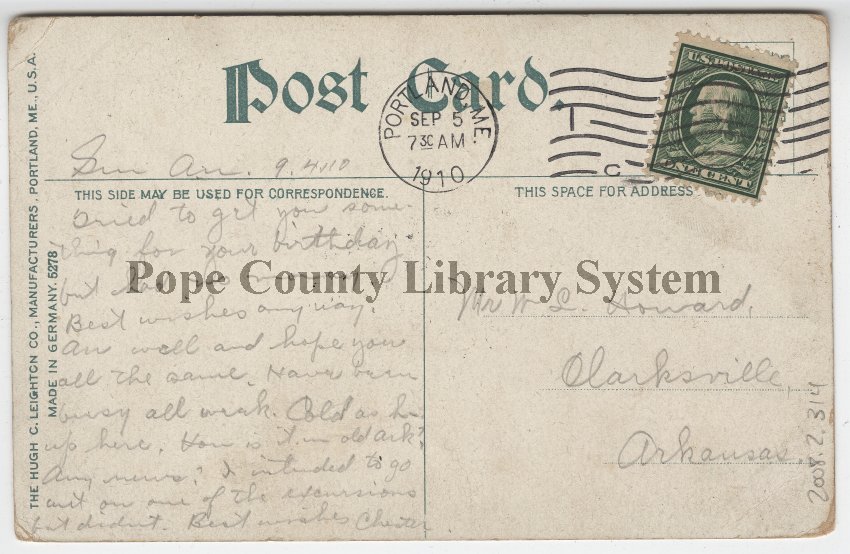 Post Card.
PORTLAND, ME.
SEP 5
7 30 AM
1910
U.S. POSTAGE
ONE CENT
9.4.10
THIS SIDE MAY BE USED FOR CORRESPONDENCE.
THIS SPACE FOR ADDRESS
Tried to get you some-
thing for your birthday
but had no
Best wishes any way.
Am well and hope you
all the same. Have been
busy all week. Cold as h-
up here. How is it in old Ark?
Any news? I intended to go
out on one of the excursions
but didn't. Best wishes Chester
Mr W. L. Howard,
Clarksville,
Arkansas.
THE HUGH C. LEIGHTON CO., MANUFACTURERS, PORTLAND, ME., U.S.A.
MADE IN GERMANY. 5278
Pope County Library System
2008.2.314